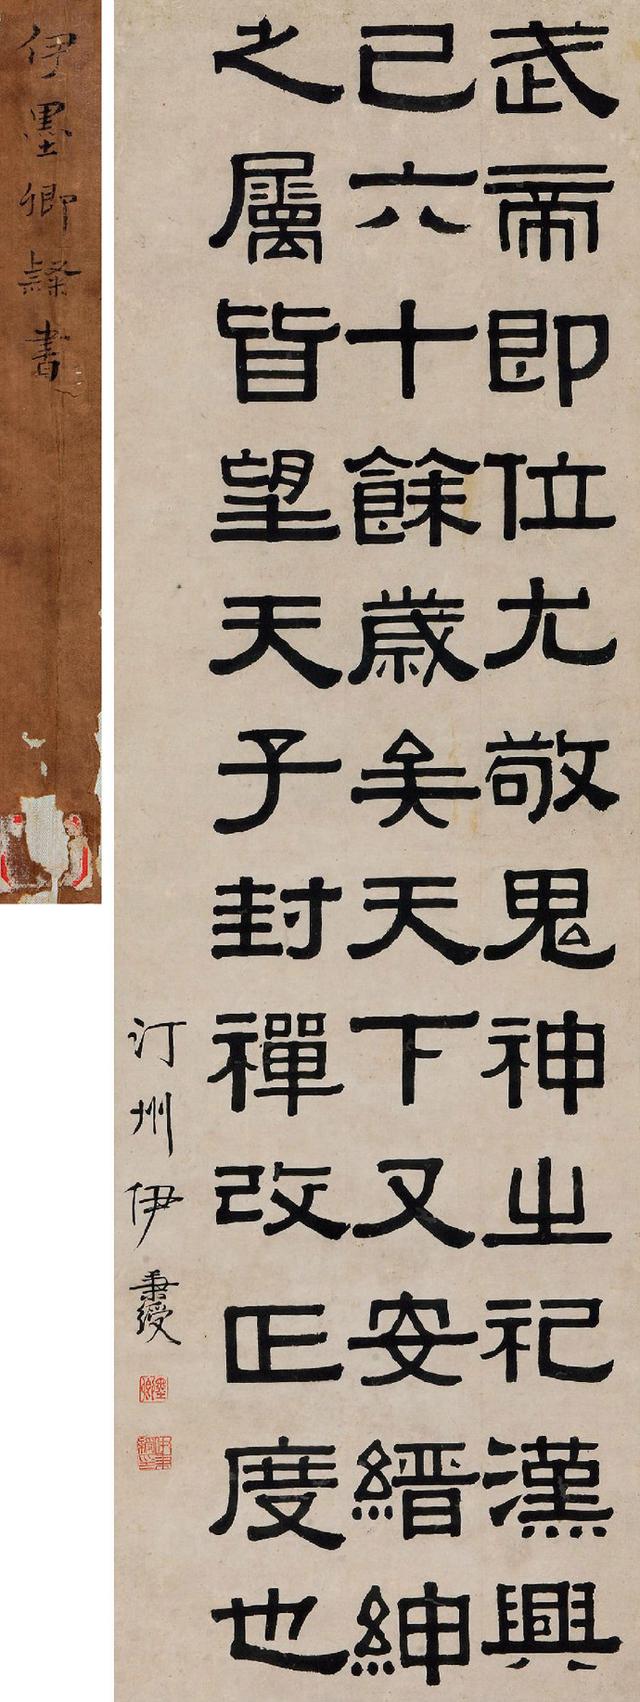 武帝即位尤敬鬼神之祀漢興
已六十餘歲矣天下又安縉紳
之屬皆望天子封禪改正度也
汀州伊秉綬
墨卿
伊秉綬印
伊墨卿隸書